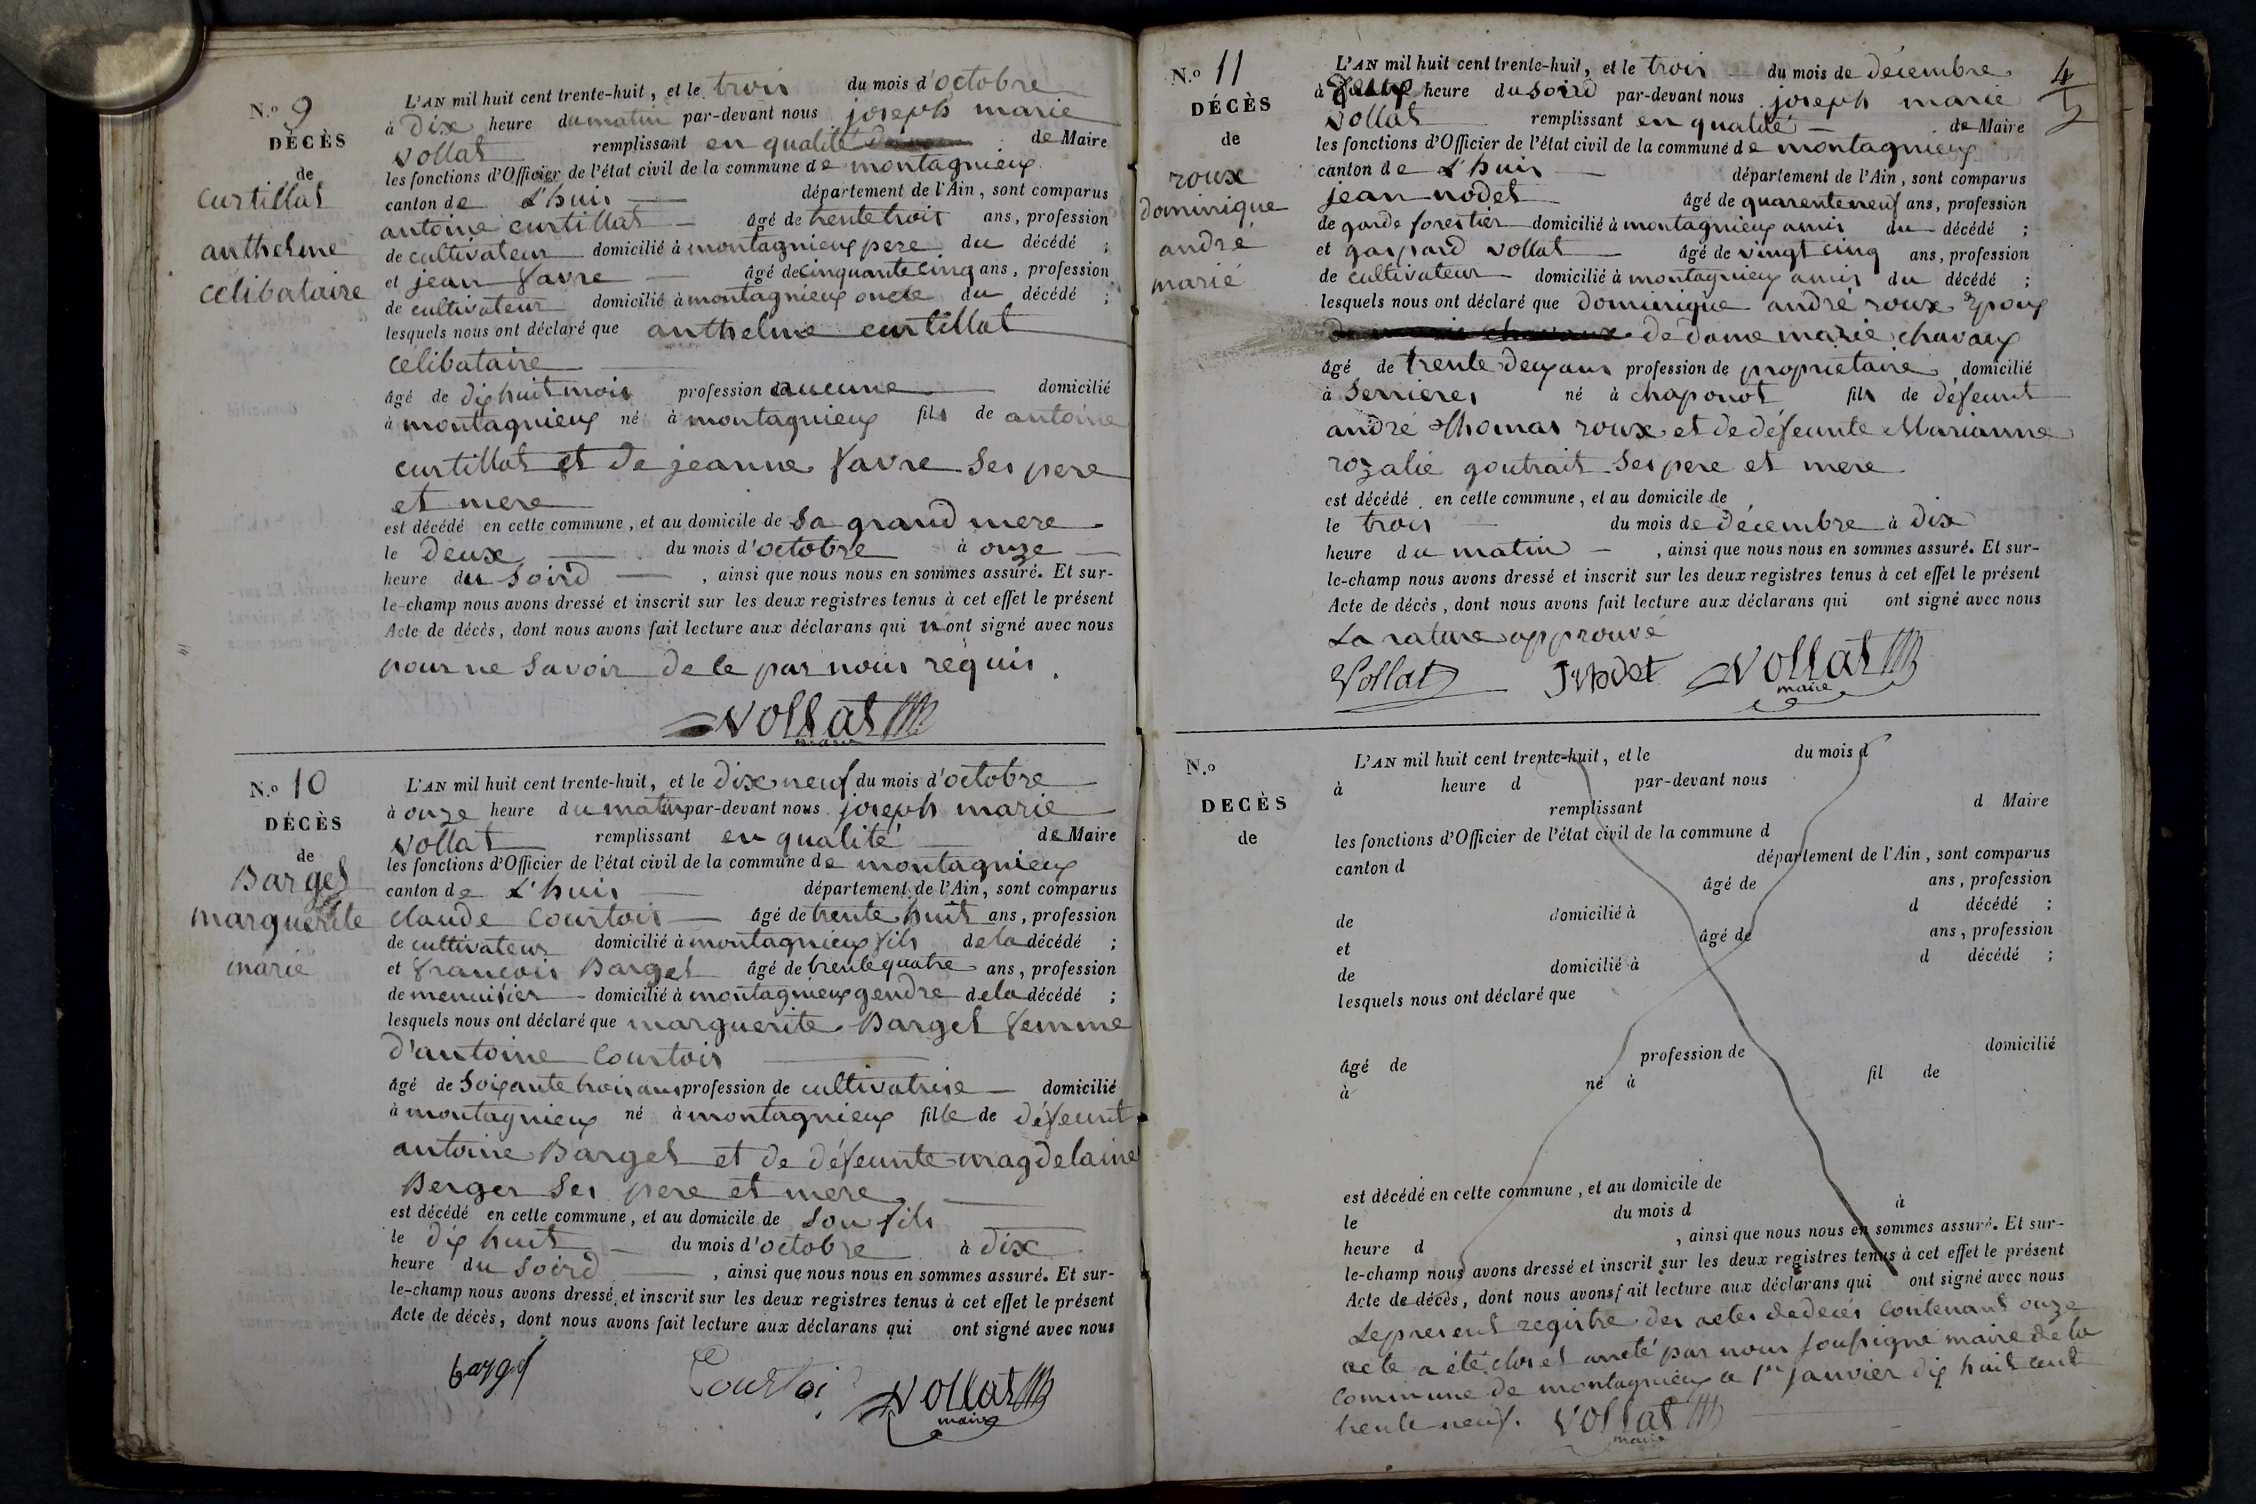 N.o 9
DÉCÈS
de
curtillat
anthelme
célibataire
L'AN mil huit cent trente-huit, et le trois du mois d'octobre
à dix heure du matin par-devant nous joseph marie
vollat remplissant en qualité de Maire
les fonctions d'Officier de l'état civil de la commune de montagnieux
canton de L'huis département de l'Ain, sont comparus
antoine curtillat âgé de trente trois ans, profession
de cultivateur domicilié à montagnieux pere du décédé ;
et jean favre âgé de cinquante cinq ans, profession
de cultivateur domicilié à montagnieux oncle du décédé ;
lesquels nous ont déclaré que anthelme curtillat
celibataire
âgé de dix huit mois profession d aucune domicilié
à montagnieux né à montagnieux fils de antoine
curtillat et de jeanne favre ses pere
et mere
est décédé en cette commune, et au domicile de sa grand mere
le deux du mois d'octobre à onze
heure du soird , ainsi que nous nous en sommes assuré. Et sur-
le-champ nous avons dressé et inscrit sur les deux registres tenus à cet effet le présent
Acte de décès, dont nous avons fait lecture aux déclarans qui n ont signé avec nous
pour ne savoir de le par nous requis.
vollat
maire
N.o 10
DÉCÈS
de
Barget
marguerite
marié
L'AN mil huit cent trente-huit, et le dixneuf du mois d'octobre
à onze heure du matin par-devant nous joseph marie
vollat remplissant en qualité de Maire
les fonctions d'Officier de l'état civil de la commune de montagnieux
canton de L'huis département de l'Ain, sont comparus
claude Courtois âgé de trente huit ans, profession
de cultivateur domicilié à montagnieux fils de la décédé ;
et francois Barget âgé de trente quatre ans, profession
de menuisier domicilié à montagnieux gendre de la décédé ;
lesquels nous ont déclaré que marguerite Barget femme
d'antoine Courtois
âgé de soixante trois ans profession de cultivatrise domicilié
à montagnieux né à montagnieux fille de défeunt
antoine Barget et de défeunte magdelaine
Berger ses pere et mere
est décédé en cette commune, et au domicile de son fils
le dix huit du mois d'octobre à dix
heure du soird , ainsi que nous nous en sommes assuré. Et sur-
le-champ nous avons dressé et inscrit sur les deux registres tenus à cet effet le présent
Acte de décès, dont nous avons fait lecture aux déclarans qui ont signé avec nous
barget Courtoi vollat
maire
4
N.o 11
DÉCÈS
de
roux
dominique
andré
marié
L'AN mil huit cent trente-huit, et le trois du mois de décembre
à heure du soird par-devant nous joseph marie
vollat remplissant en qualité de Maire
les fonctions d'Officier de l'état civil de la commune de montagnieux
canton de L'huis département de l'Ain, sont comparus
jean nodet âgé de quarenteneuf ans, profession
de garde forestier domicilié à montagnieux amis du décédé ;
et gaspard vollat âgé de vingt cinq ans, profession
de cultivateur domicilié à montagnieux amis du décédé ;
lesquels nous ont déclaré que dominique andré roux Epoux
de dame marie chavaux
âgé de trente deux ans profession de proprietaire domicilié
à serrieres né à chaponot fils de défeunt
andré Thomas roux et de défeunte Marianne
rozalie goutrait ses pere et mere
est décédé en cette commune, et au domicile de
le trois du mois de décembre à dix
heure du matin , ainsi que nous nous en sommes assuré. Et sur-
le-champ nous avons dressé et inscrit sur les deux registres tenus à cet effet le présent
Acte de décès, dont nous avons fait lecture aux déclarans qui ont signé avec nous
La rature approuvé
Vollat J Nodet vollat
maire
N.o
DECÈS
de
L'AN mil huit cent trente-huit, et le du mois d
à heure d par-devant nous
remplissant d Maire
les fonctions d'Officier de l'état civil de la commune d
canton d département de l'Ain, sont comparus
âgé de ans, profession
de domicilié à d décédé ;
et âgé de ans, profession
de domicilié à d décédé ;
lesquels nous ont déclaré que
âgé de profession de domicilié
à né à fil de
est décédé en cette commune, et au domicile de
le du mois d à
heure d , ainsi que nous nous en sommes assuré. Et sur-
le-champ nous avons dressé et inscrit sur les deux registres tenus à cet effet le présent
Acte de décès, dont nous avons fait lecture aux déclarans qui ont signé avec nous
Le present registre des actes de deces contenant onze
acte a été clos et arreté par nous soussigné maire de la
commune de montagnieux le 1er janvier dix huit cent
trente neuf. vollat
maire